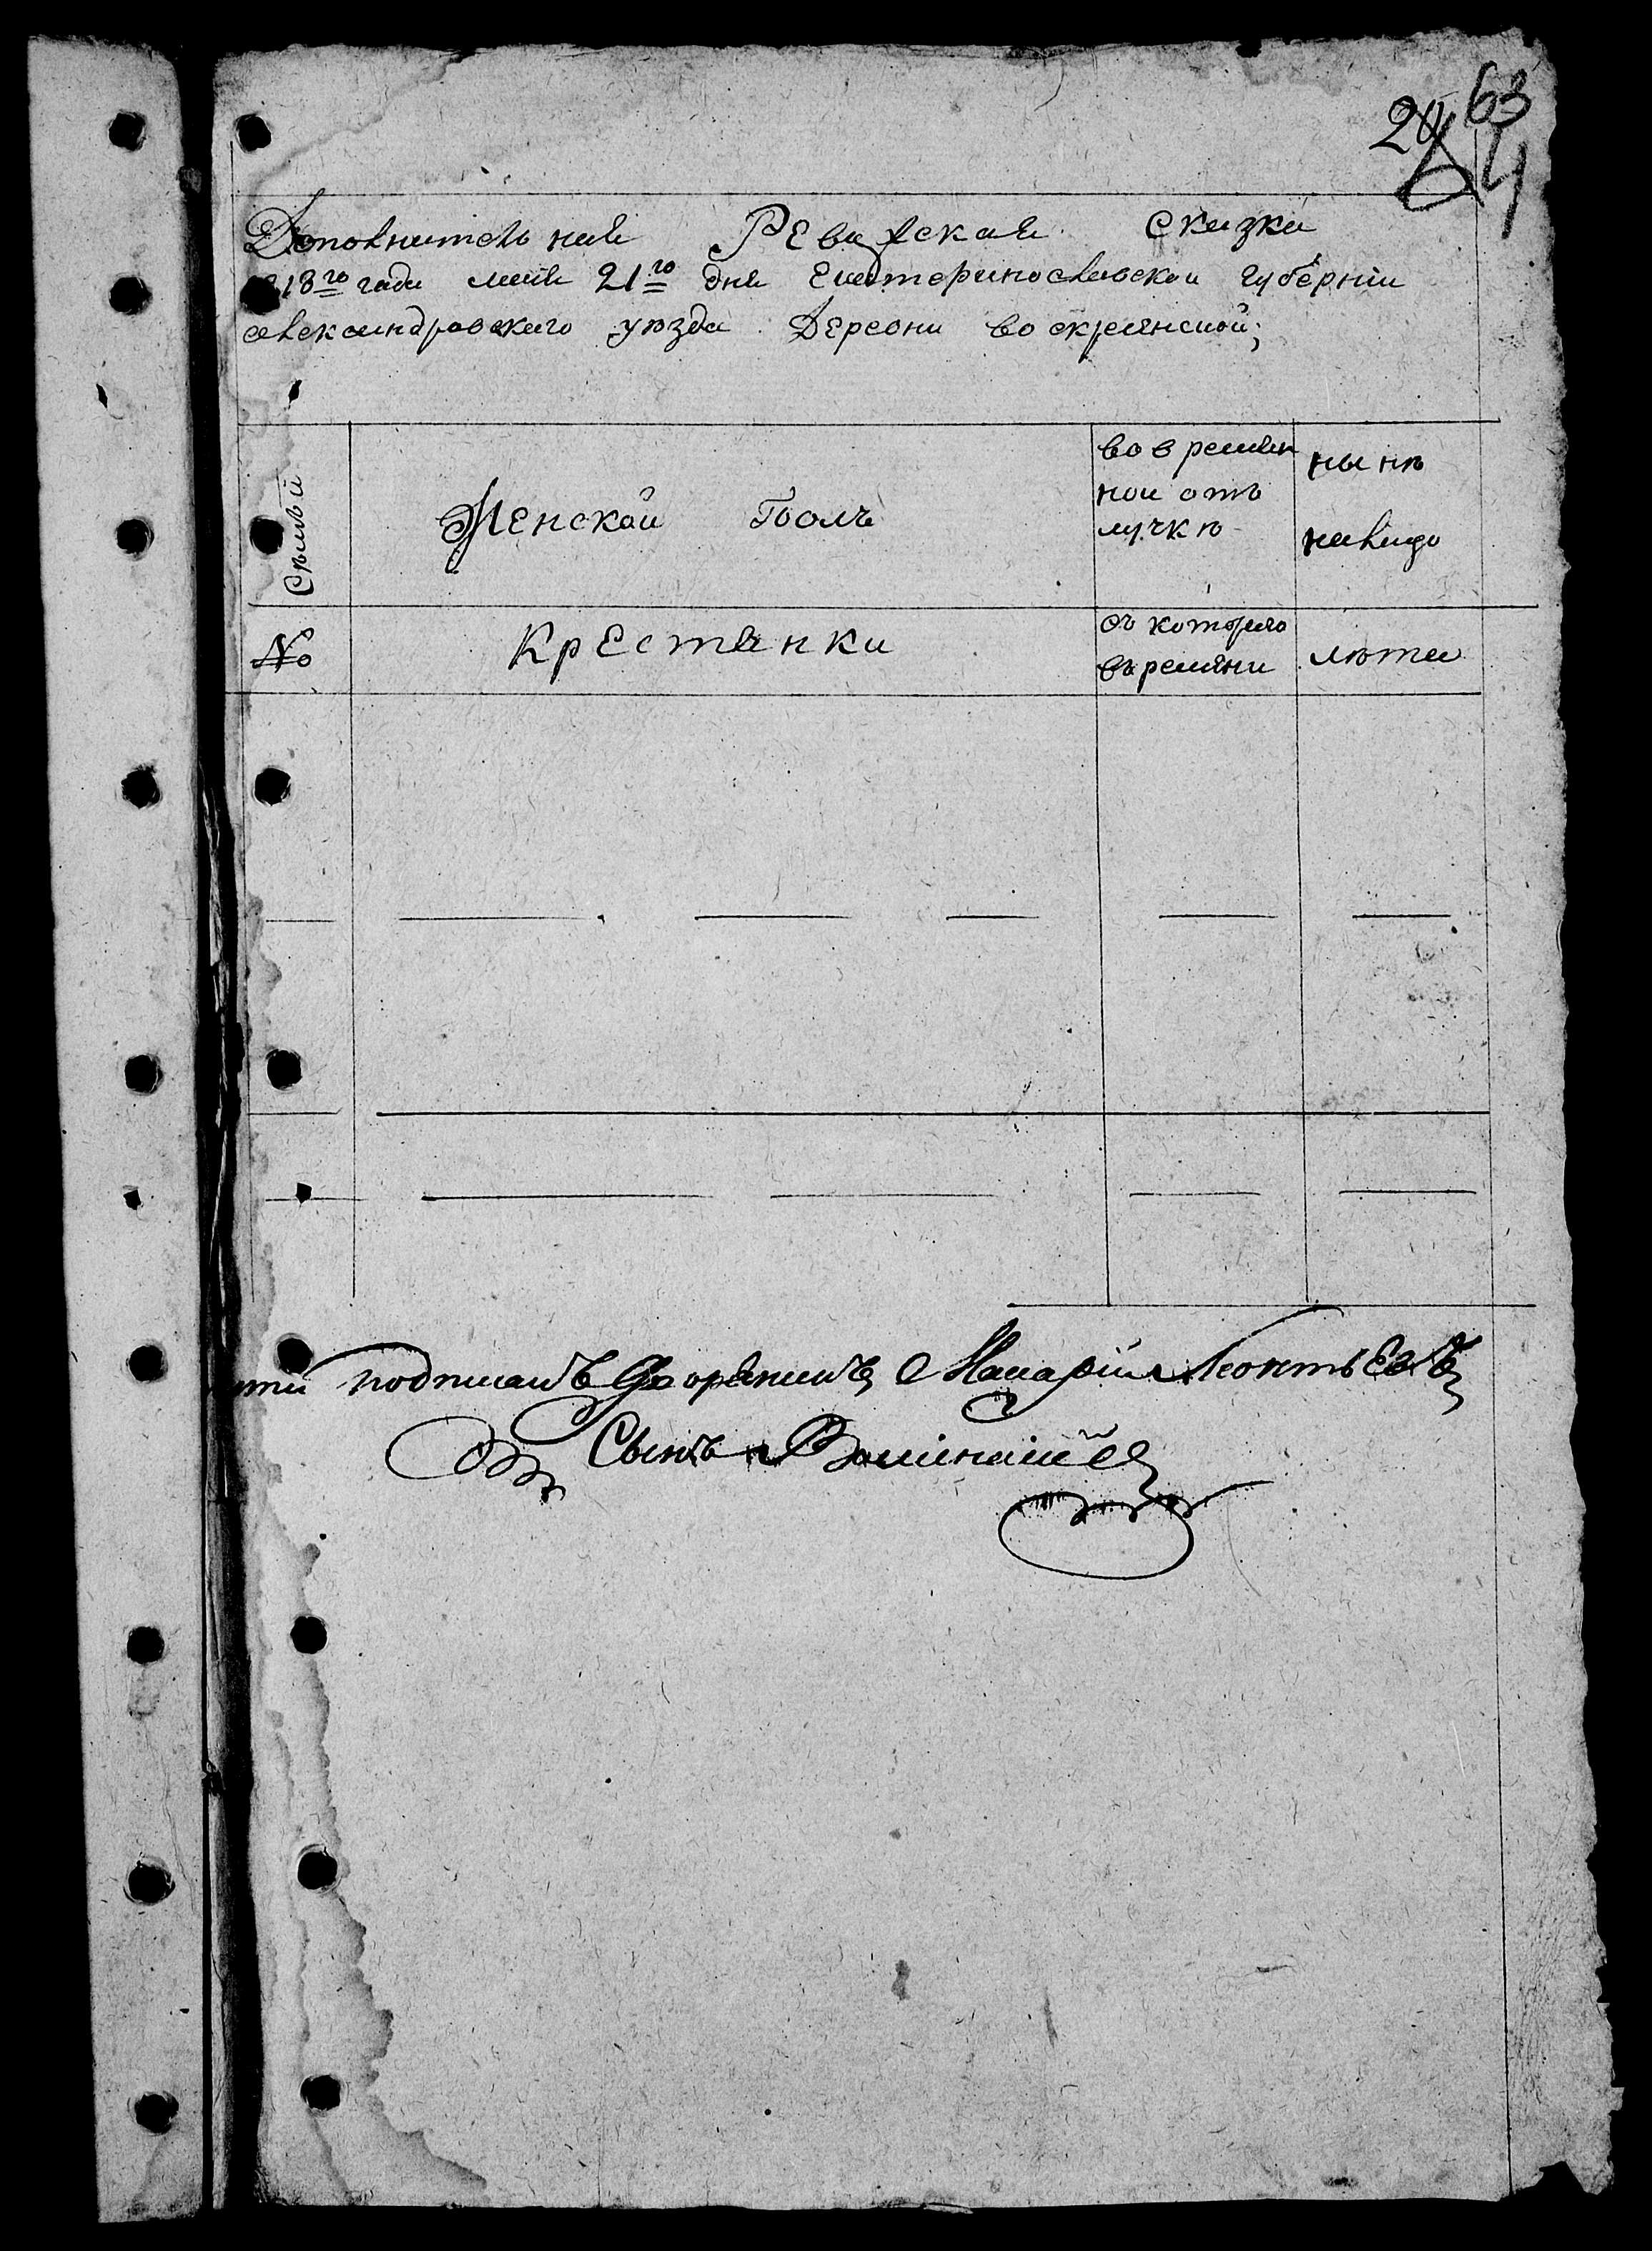 63
4
Дополнителная Ревизская сказка
1818го года маия 21го дня Екатеринославской губернии
александровского уѣзда Деревни воскрянской;
Сѣмьй
Женской Полъ
во времян
ной от
лучкѣ
ны нѣ
на лицо
№
Крестянки
съ которого
времяни
лѣта
подписалъ Дворянинъ Макарий Леонтьевъ
Сынъ